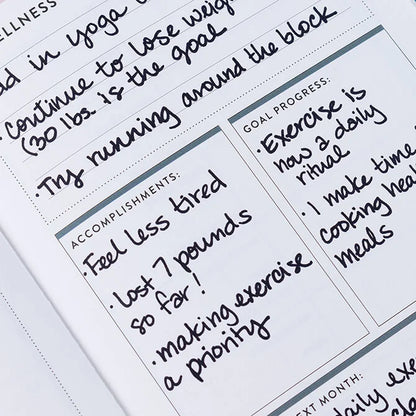 ELLNESS
in yoga
• Continue to lose
(30 lbs. is the goal
• Try running around the block
ACCOMPLISHMENTS:
• Feel less tired
• Lost 7 pounds
so far!
• making exercise
a priority
GOAL PROGRESS:
• Exercise is
now a daily
ritual
• I make time
cooking
meals
EXT MONTH: